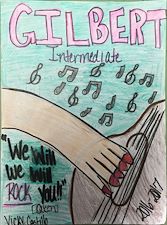 GILBERT
Intermediate
"We Will
We Will
ROCK You!!"
(Queen)
Vicky Castillo
2016-2017